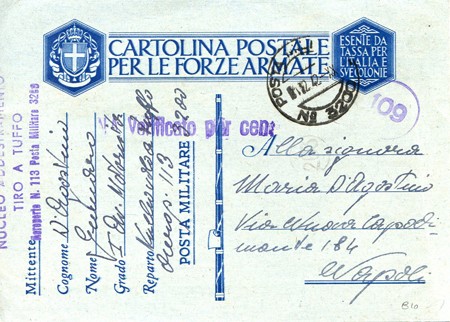 CARTOLINA POSTALE
PER LE FORZE ARMATE
ESENTE DA
TASSA PER
L'ITALIA E
SUE COLONIE
POSTA MILITARE
N 3200
109
Verificato per cens
NUCLEO ADDESTRAMENTO
TIRO A TUFFO
Aeroporto N. 113 Posta Militare 3200
Mittente
Cognome D'Agostino
Nome Gennaro
Grado
Reparto
113
POSTA MILITARE 3200
Alla signora
Maria D'Agostino
Via Nuova Capodi-
monte 184
Napoli
B10